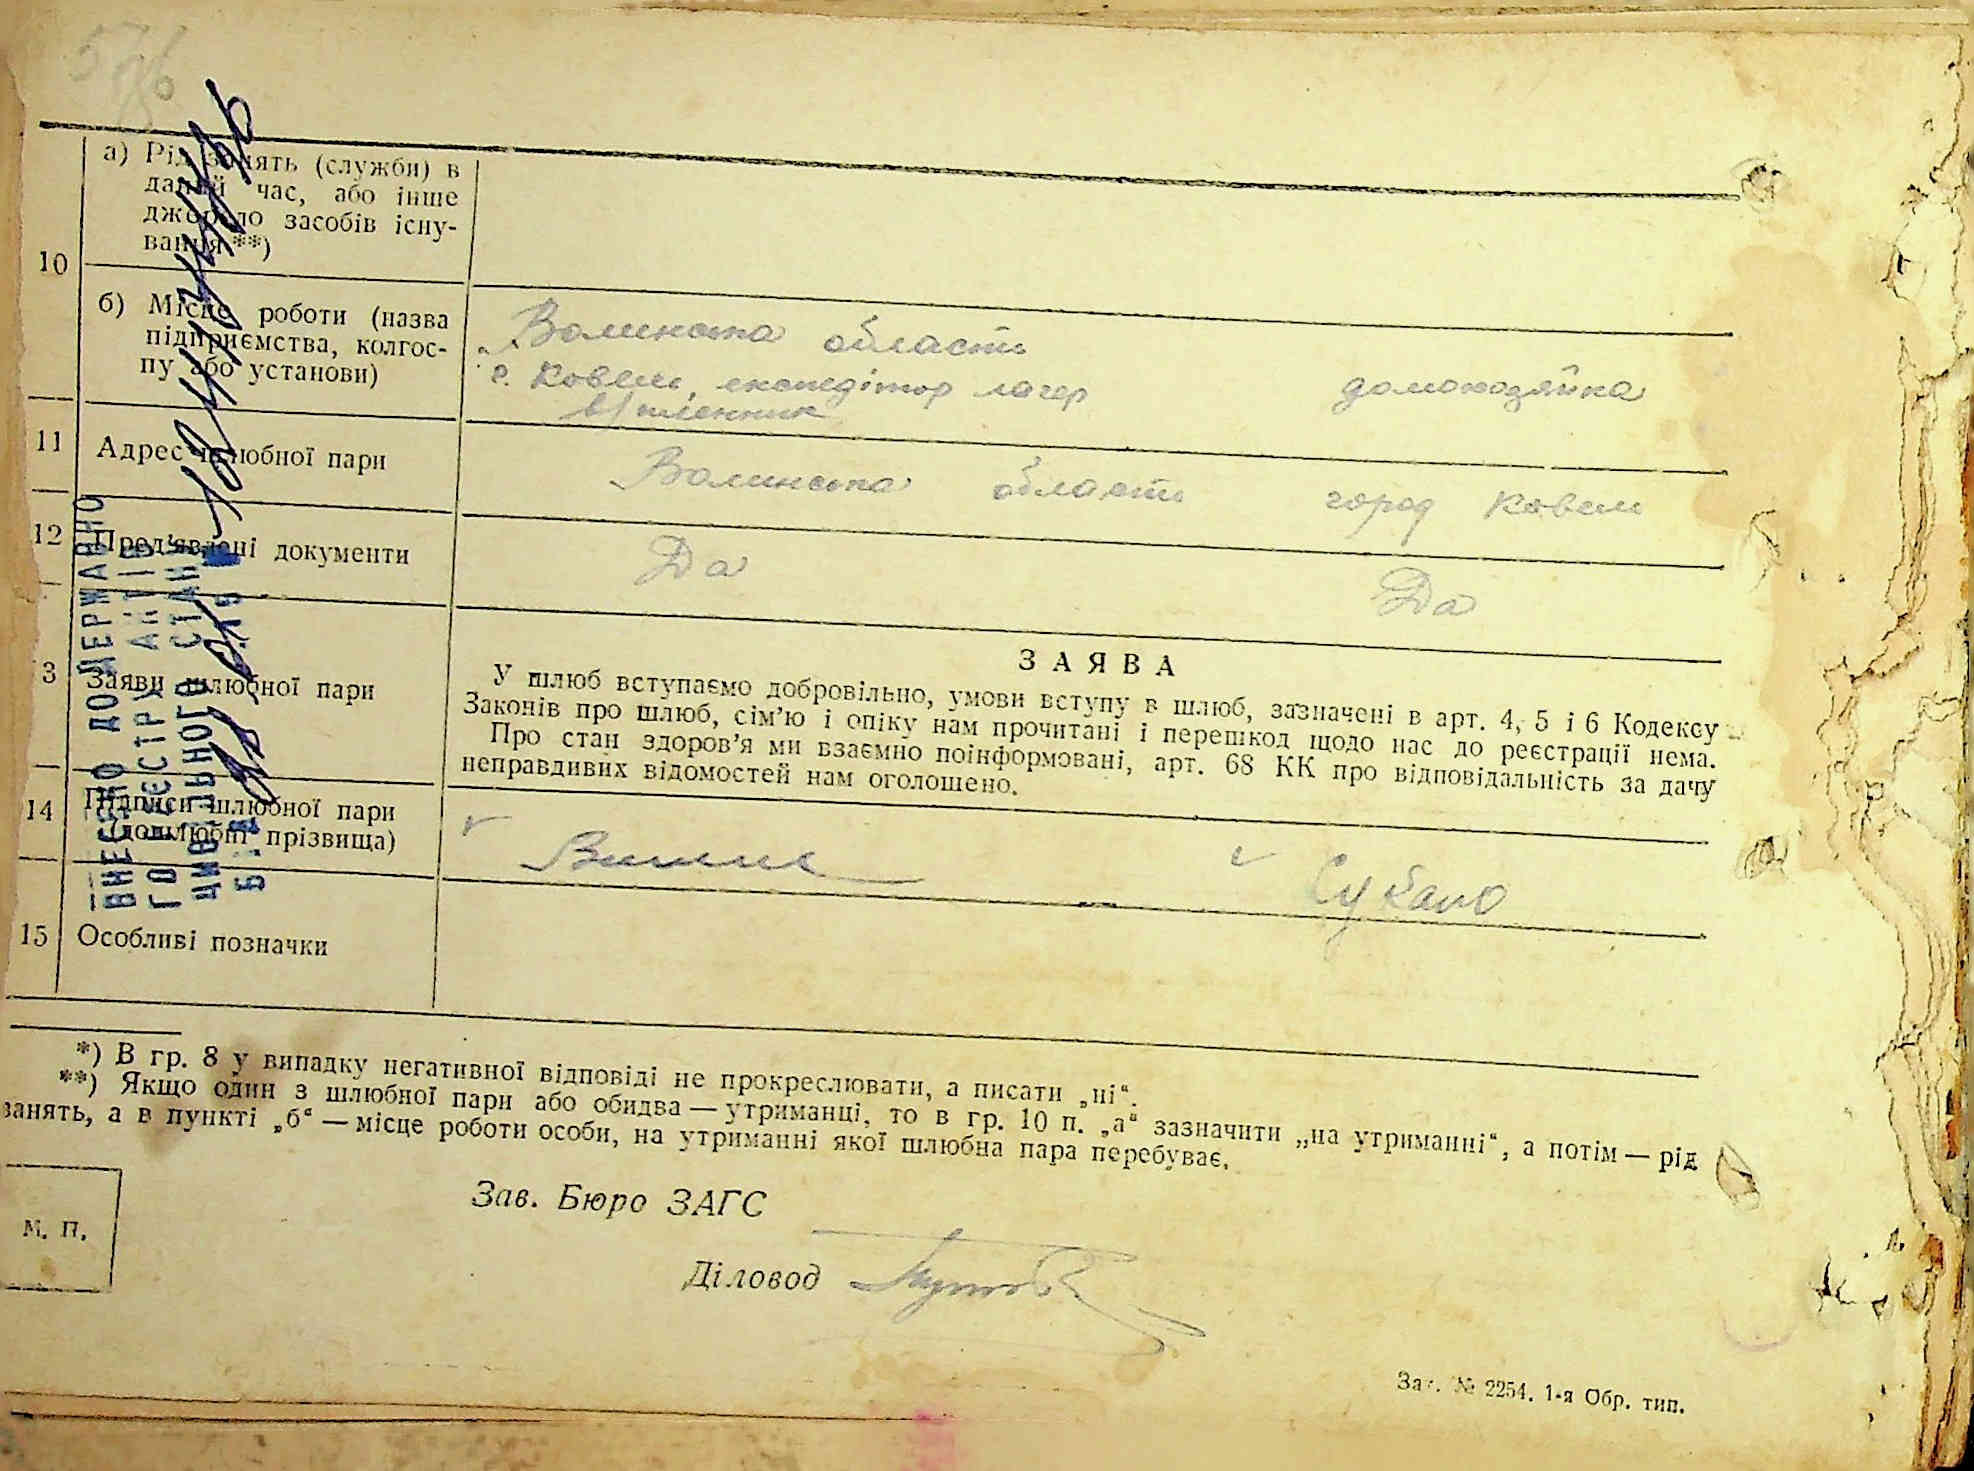 10
а) Рід занять (службы) в
даний час, або інше
джерело засобів існу-
вання **)
б) Місце роботи (назва
підприємства, колгос-
пу або установи)
Волинська область
г. Ковель, експедітор лагер
в/пленник
домохозяйка
11
Адрес шлюбної пари
Волинська область город Ковель
12
Пред'явлені документи
Да Да
3
Заяви шлюбної пари
ЗАЯВА
У шлюб вступаємо добровільно, умови вступу в шлюб, зазначені в арт. 4, 5 і 6 Кодексу
Законів про шлюб, сім'ю і опіку нам прочитані і перешкод щодо нас до реєстрації нема.
Про стан здоров'я ми взаємно поінформовані, арт. 68 КК про відповідальність за дачу
неправдивих відомостей нам оголошено.
14
Підписи шлюбної пари
(дошлюбні прізвища)
15
Особливі позначки
ВНЕСЕНО ДО ДЕРЖАВНО
ГО РЕЄСТРУ АКТІВ
ЦИВІЛЬНОГО СТАН
*) В гр. 8 у випадку негативної відповіді не прокреслювати, а писати „ні“.
**) Якщо один з шлюбної пари або обидва — утриманці, то в гр. 10 п. „а“ зазначити „на утриманні“, а потім — рід
занять, а в пункті „б“ — місце роботи особи, на утриманні якої шлюбна пара перебуває.
М. П.
Зав. Бюро ЗАГС
Діловод
Заг. № 2254. 1-я Обр. тип.